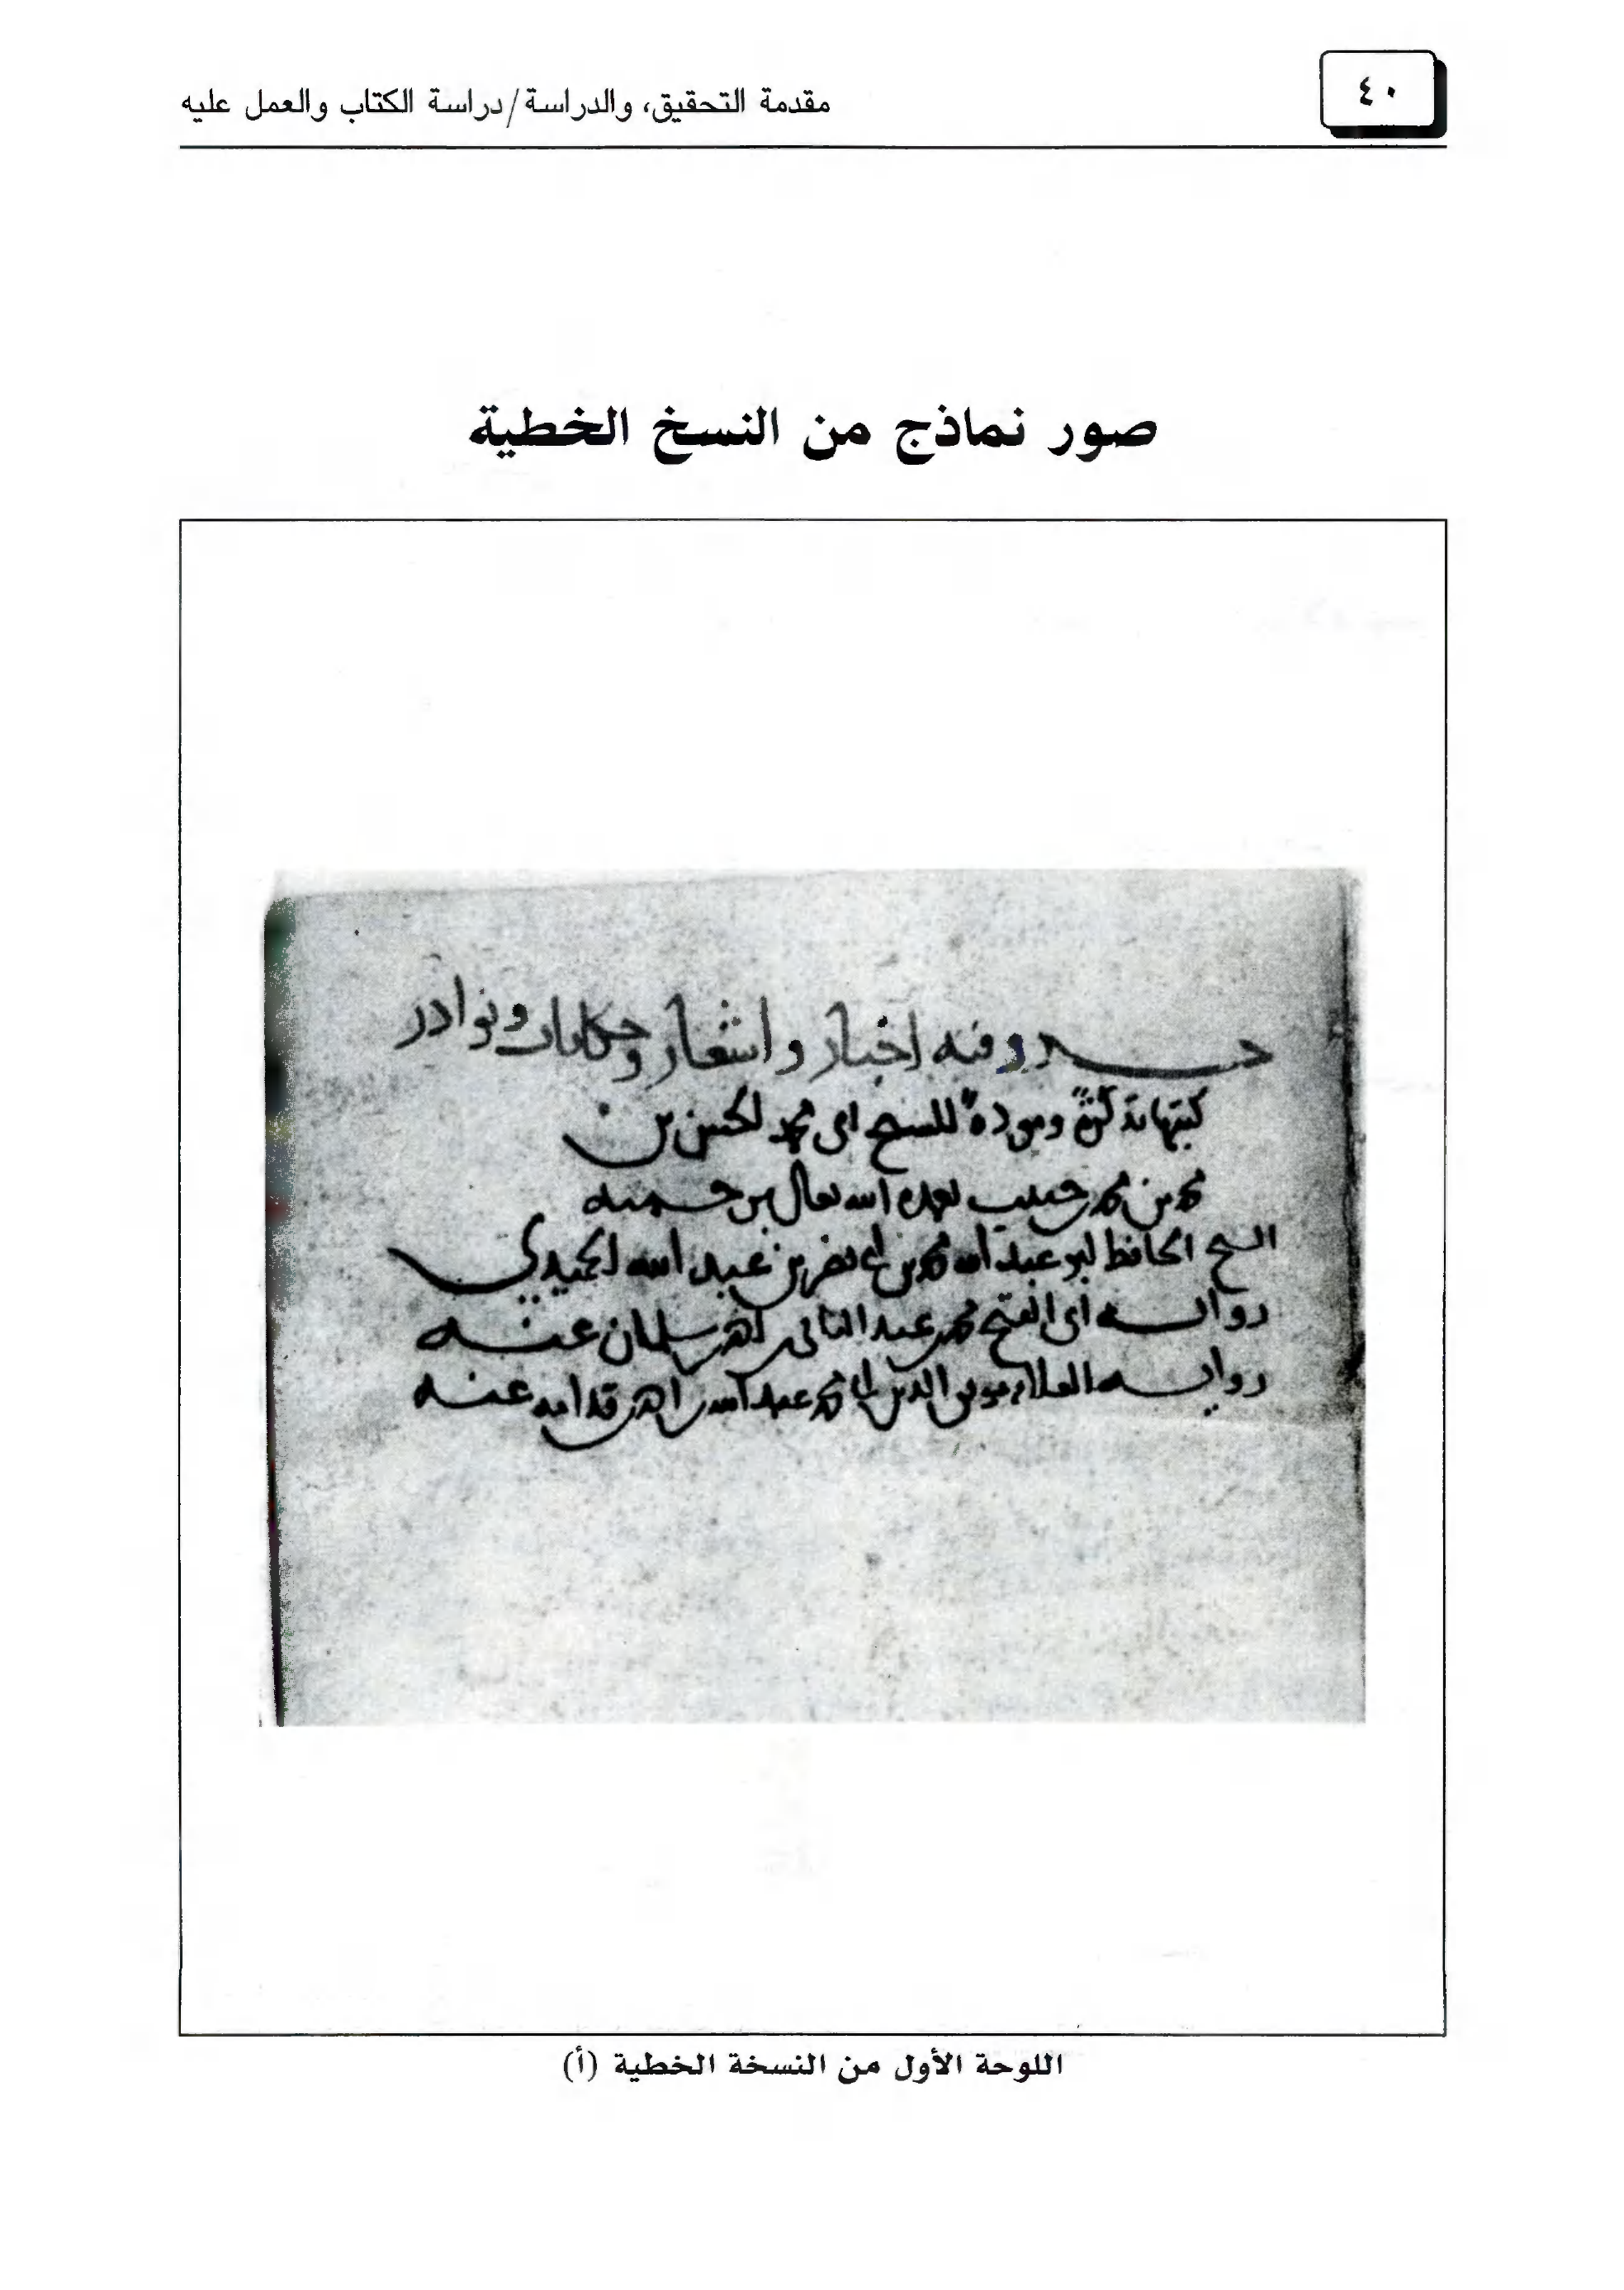 ٤٠
مقدمة التحقيق، والدراسة/دراسة الكتاب والعمل عليه
صور نماذج من النسخ الخطية
جـزو فيه اخبار واشعار وحكايات ونوادر
كتبتها تذكرة ومودة للشيخ ابى محمد الحسن بن
محمد بن محمد حبيب تعمده الله تعالى برحمته
الشيخ الحافظ ابو عبد الله محمد بن ابى نصر بن عبد الله الحميدي
رواية ابى الفتح محمد بن عبد الباقي بن احمد بن سلمان عنه
رواية العلامة موفق الدين ابى محمد عبد الله بن احمد بن قدامه عنه
اللوحة الأول من النسخة الخطية (أ)